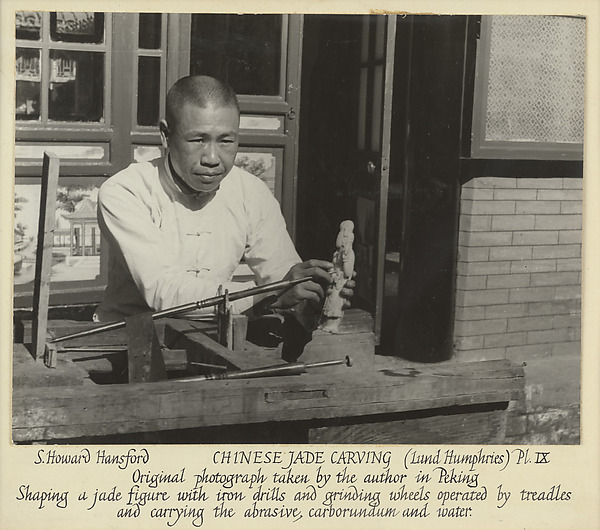 S. Howard Hansford CHINESE JADE CARVING (Lund Humphries) Pl. IX
Original photograph taken by the author in Peking
Shaping a jade figure with iron drills and grinding wheels operated by treadles
and carrying the abrasive, carborundum and water.